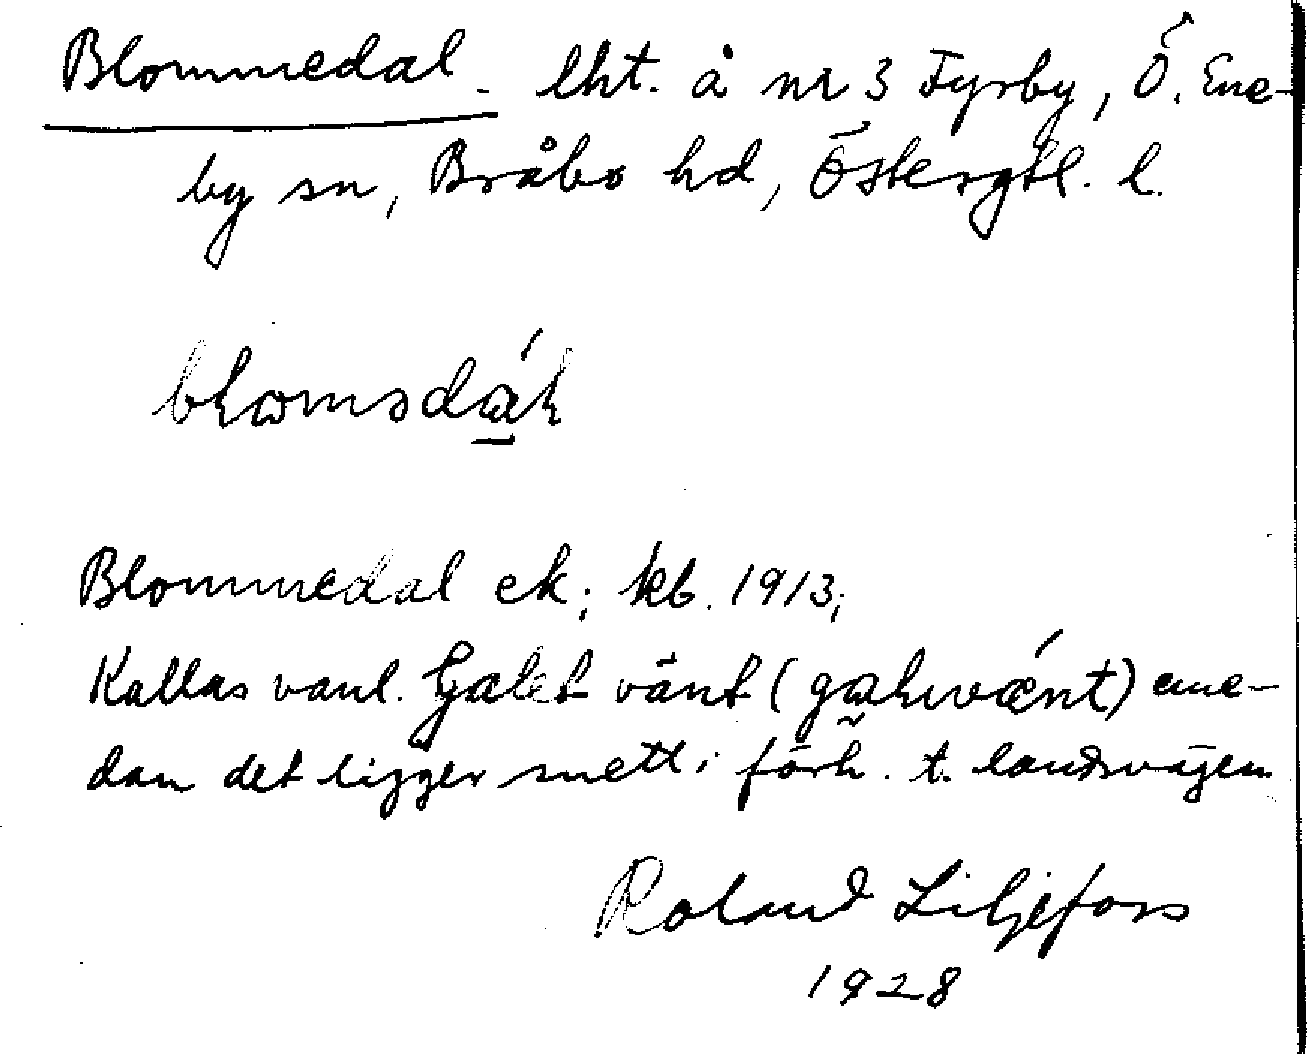 Blommedal - lht. å nr 3 Fyrby, Ö. Ene-
by sn, Bråbo hd, Östergtl. l.
Blommedal ek; kb. 1913;
Kallas vanl. Galet vänt ( ) eme-
dan det ligger snett i förh. t. landsvägen
Roland Liljefors
1928